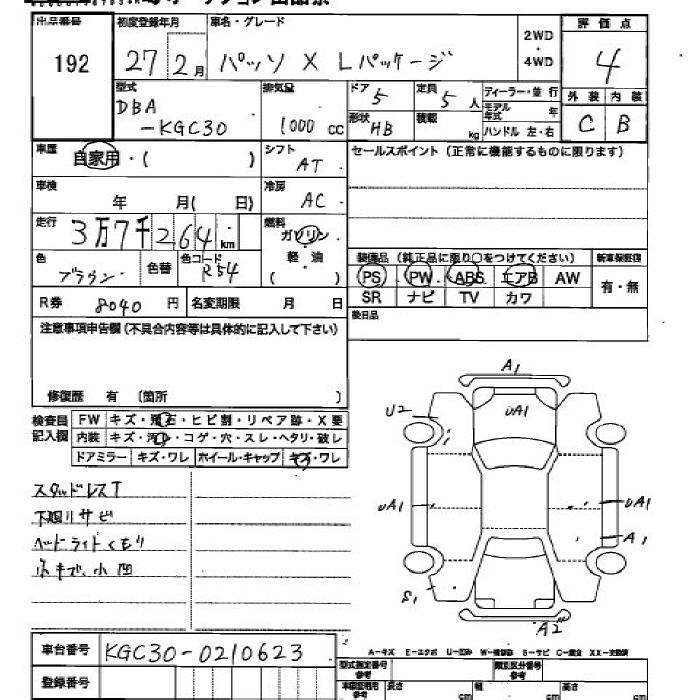 出品番号 初度登録年月 車名・グレード 2WD・4WD 評価点
192 27 2月 パッソ X Lパッケージ 4
型式 排気量 ドア 5 定員 5人 ディーラー・並行 外装 内装
DBA 形状 HB 積載 kg モデル年式 年 C B
-KGC30 1000cc ハンドル 左・右
車歴 自家用・( ) シフト AT セールスポイント(正常に機能するものに限ります)
車検 年 月( 日) 冷房 AC
走行 3万7千264km 燃料 ガソリン・軽・油 ( )
色 ブラウン 色替 色コード R54
装備品(純正品に限り○をつけてください) 新車保証書
PS PW ABS エアB AW 有・無
SR ナビ TV カワ
R券 8040円 名変期限 月 日 後日品
注意事項申告欄(不具合内容等は具体的に記入して下さい)
修復歴 有 (箇所 )
検査員記入欄 FW キズ・飛石・ヒビ割・リペア跡・X要
内装 キズ・汚れ・コゲ・穴・スレ・ヘタリ・破レ
ドアミラー キズ・ワレ ホイール・キャップ キズ・ワレ
スタッドレスT
下廻りサビ
ヘッドライトくもり
小キズ、小凹
A1
U2
UA1
UA1
UA1
A1
S1
A2
車台番号 KGC30-0210623
A-キズ E-エクボ U-凹み W-補修跡 S-サビ C-腐食 XX-交換済
登録番号 型式指定番号 参考 類別区分番号 参考
長さ cm 幅 cm 高さ cm